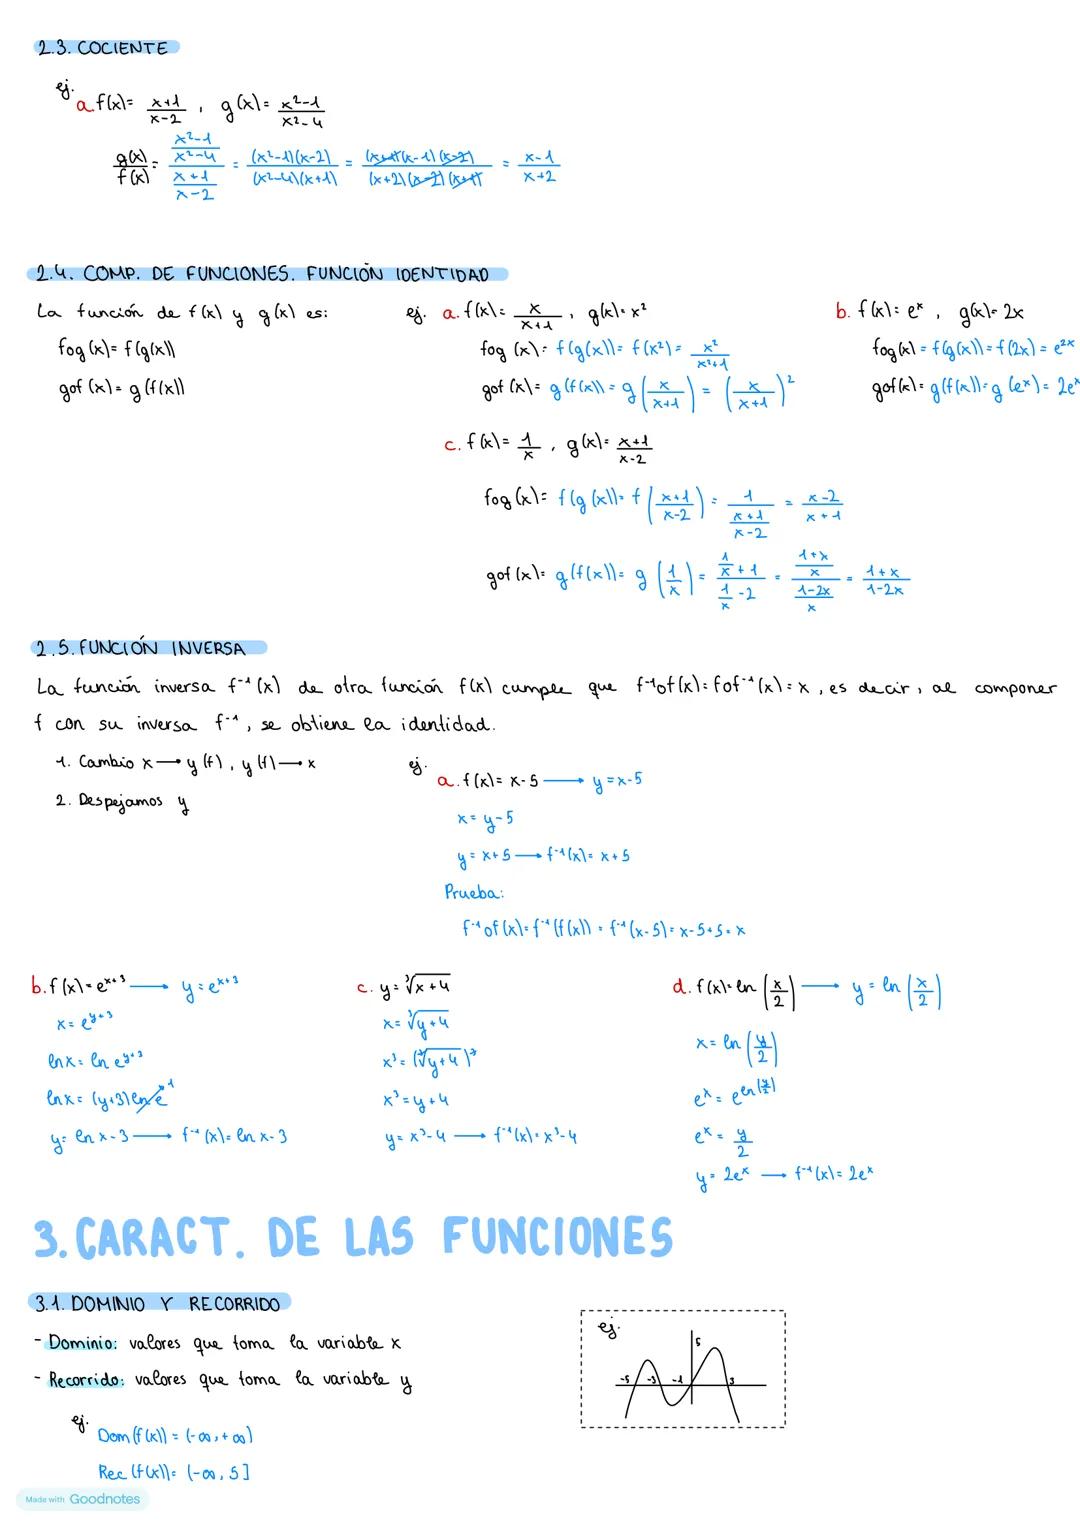 2.3. COCIENTE
ej.
a. f(x)= x+1/x-2 , g(x)= x²-1/x²-4
g(x)/f(x) = (x²-1/x²-4)/(x+1/x-2) = (x²-1)(x-2)/(x²-4)(x+1) = (x+1)(x-1)(x-2)/(x+2)(x-2)(x+1) = x-1/x+2
2.4. COMP. DE FUNCIONES. FUNCIÓN IDENTIDAD
La función de f(x) y g(x) es:
fog(x)= f(g(x))
gof(x)= g(f(x))
ej. a. f(x)= x/x+1 , g(x)= x²
fog(x)= f(g(x))= f(x²)= x²/x²+1
gof(x)= g(f(x))= g(x/x+1) = (x/x+1)²
b. f(x)= eˣ , g(x)= 2x
fog(x)= f(g(x))= f(2x)= e²ˣ
gof(x)= g(f(x))= g(eˣ)= 2eˣ
c. f(x)= 1/x , g(x)= x+1/x-2
fog(x)= f(g(x))= f(x+1/x-2) = 1/(x+1/x-2) = x-2/x+1
gof(x)= g(f(x))= g(1/x) = (1/x+1)/(1/x-2) = (1+x/x)/(1-2x/x) = 1+x/1-2x
2.5. FUNCIÓN INVERSA
La función inversa f⁻¹(x) de otra función f(x) cumple que f⁻¹of(x)= fof⁻¹(x)= x , es decir, al componer
f con su inversa f⁻¹, se obtiene la identidad.
1. Cambio x → y(f), y(f) → x
2. Despejamos y
ej.
a. f(x)= x-5 → y=x-5
x= y-5
y= x+5 → f⁻¹(x)= x+5
Prueba:
f⁻¹of(x)= f⁻¹(f(x)) = f⁻¹(x-5)= x-5+5= x
b. f(x)= eˣ⁺³ → y= eˣ⁺³
x= eʸ⁺³
ln x= ln eʸ⁺³
ln x= (y+3) ln e 1
y= ln x-3 → f⁻¹(x)= ln x-3
c. y= ³√x+4
x= ³√y+4
x³= (³√y+4)³
x³= y+4
y= x³-4 → f⁻¹(x)= x³-4
d. f(x)= ln(x/2) → y= ln(x/2)
x= ln(y/2)
eˣ= e^ln(y/2)
eˣ= y/2
y= 2eˣ → f⁻¹(x)= 2eˣ
3. CARACT. DE LAS FUNCIONES
3.1. DOMINIO Y RECORRIDO
- Dominio: valores que toma la variable x
- Recorrido: valores que toma la variable y
ej.
Dom(f(x)) = (-∞,+∞)
Rec(f(x))= (-∞,5]
ej.
5
-5 -3 -1 3
Made with Goodnotes